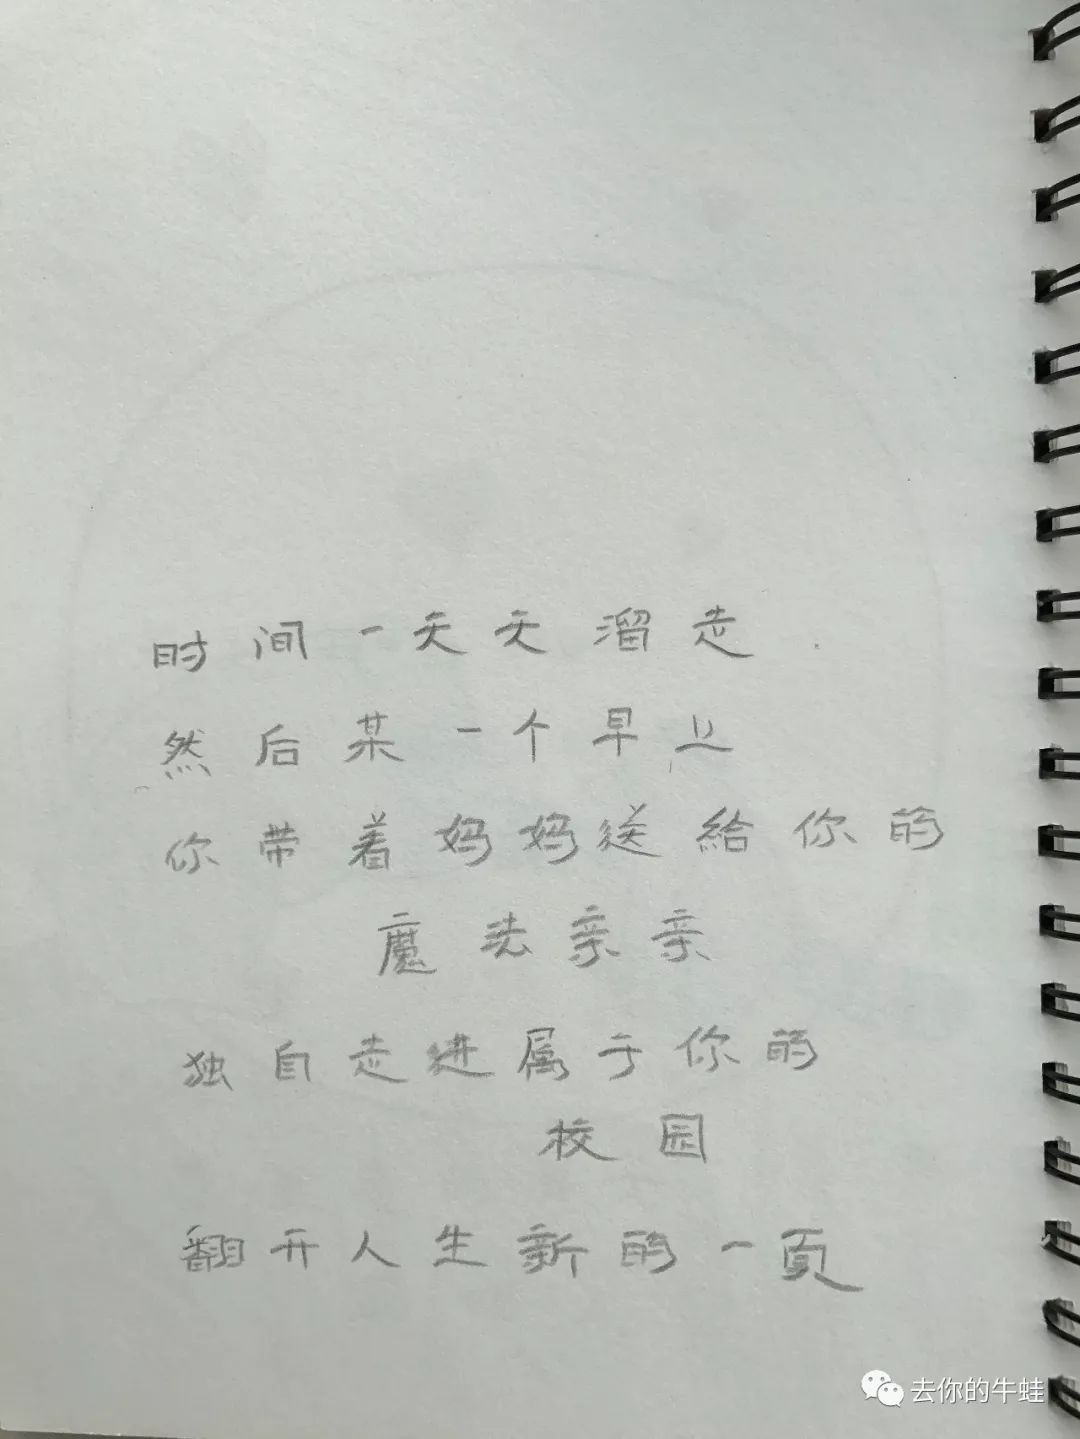 时间一天天溜走
然后某一个早上
你带着妈妈送給你的
魔法亲亲
独自走进属于你的
校园
翻开人生新的一頁
去你的牛蛙